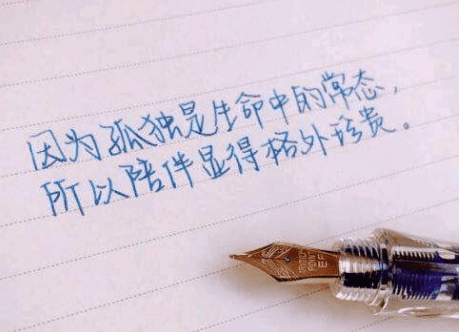 因为孤独是生命中的常态，
所以陪伴显得格外珍贵。